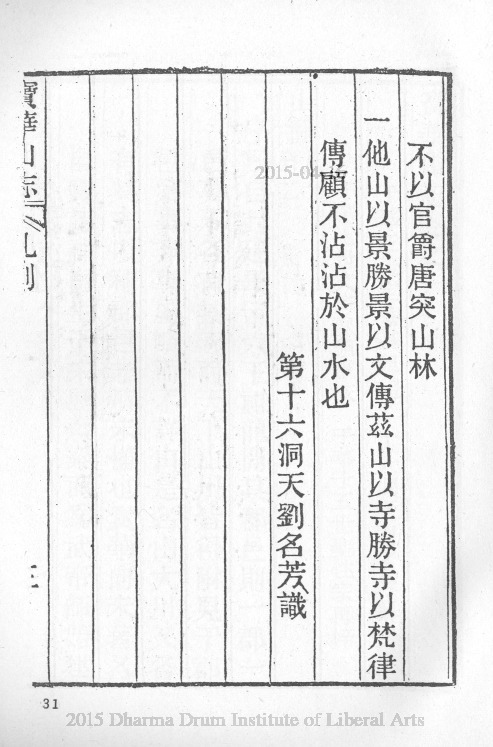 不以官爵唐突山林
一他山以景勝景以文傳茲山以寺勝寺以梵律
傳顧不沾沾於山水也
第十六洞天劉名芳識
寶華山志 凡例
31
2015-04
2015 Dharma Drum Institute of Liberal Arts